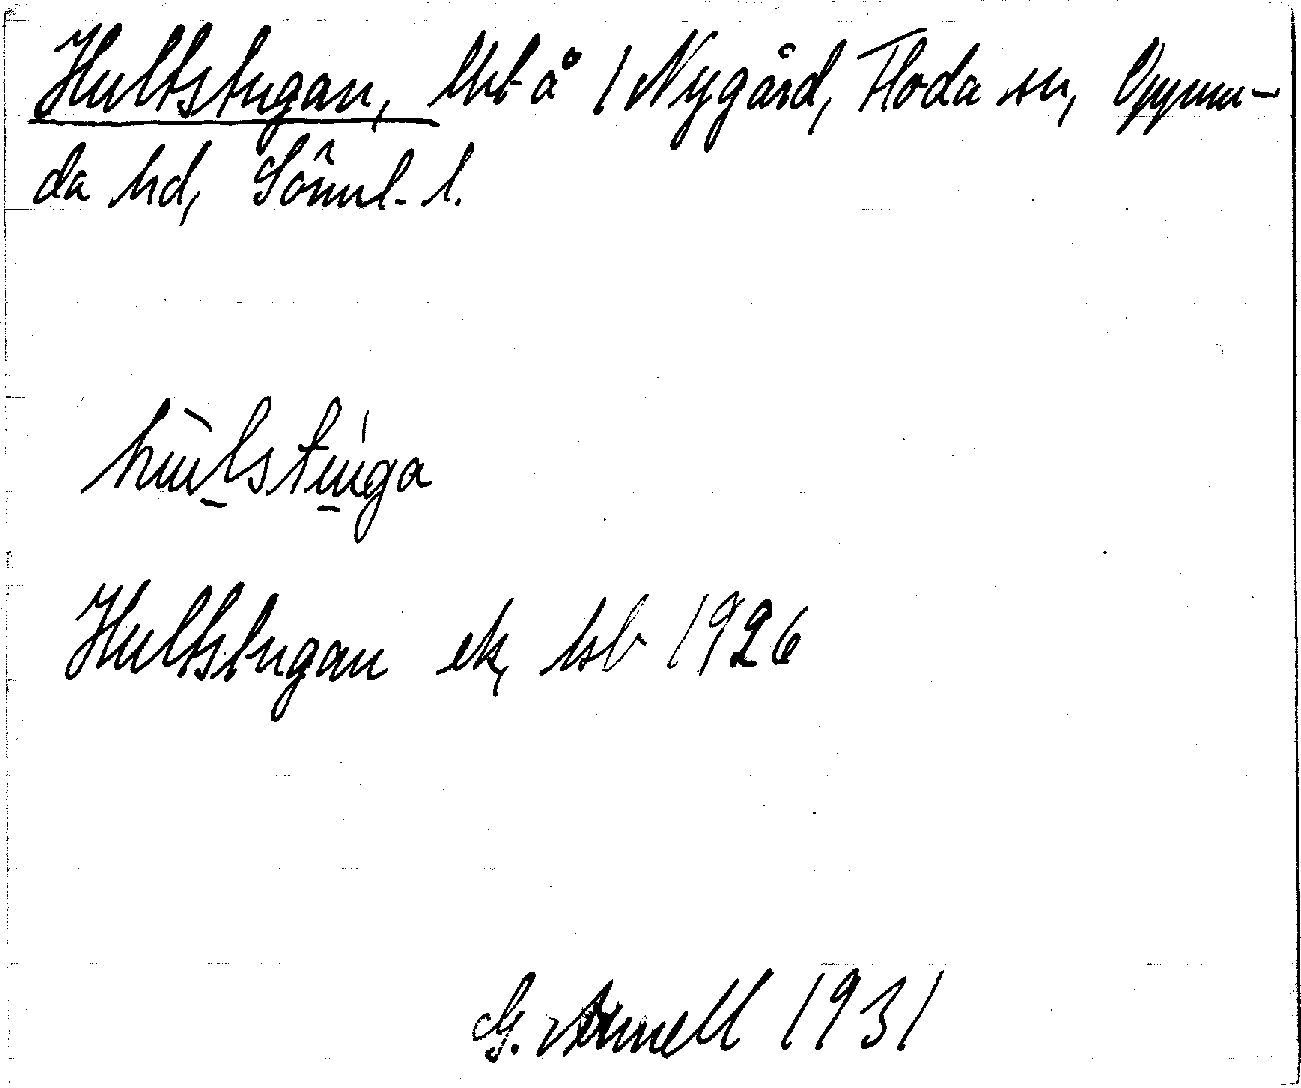 Hultstugan, lht å 1 Nygård, Floda sn, Oppun-
da hd, Sörml. l.
hu̠lstu̠ga
Hultstugan ek, hsb 1926
G. Arnell 1931